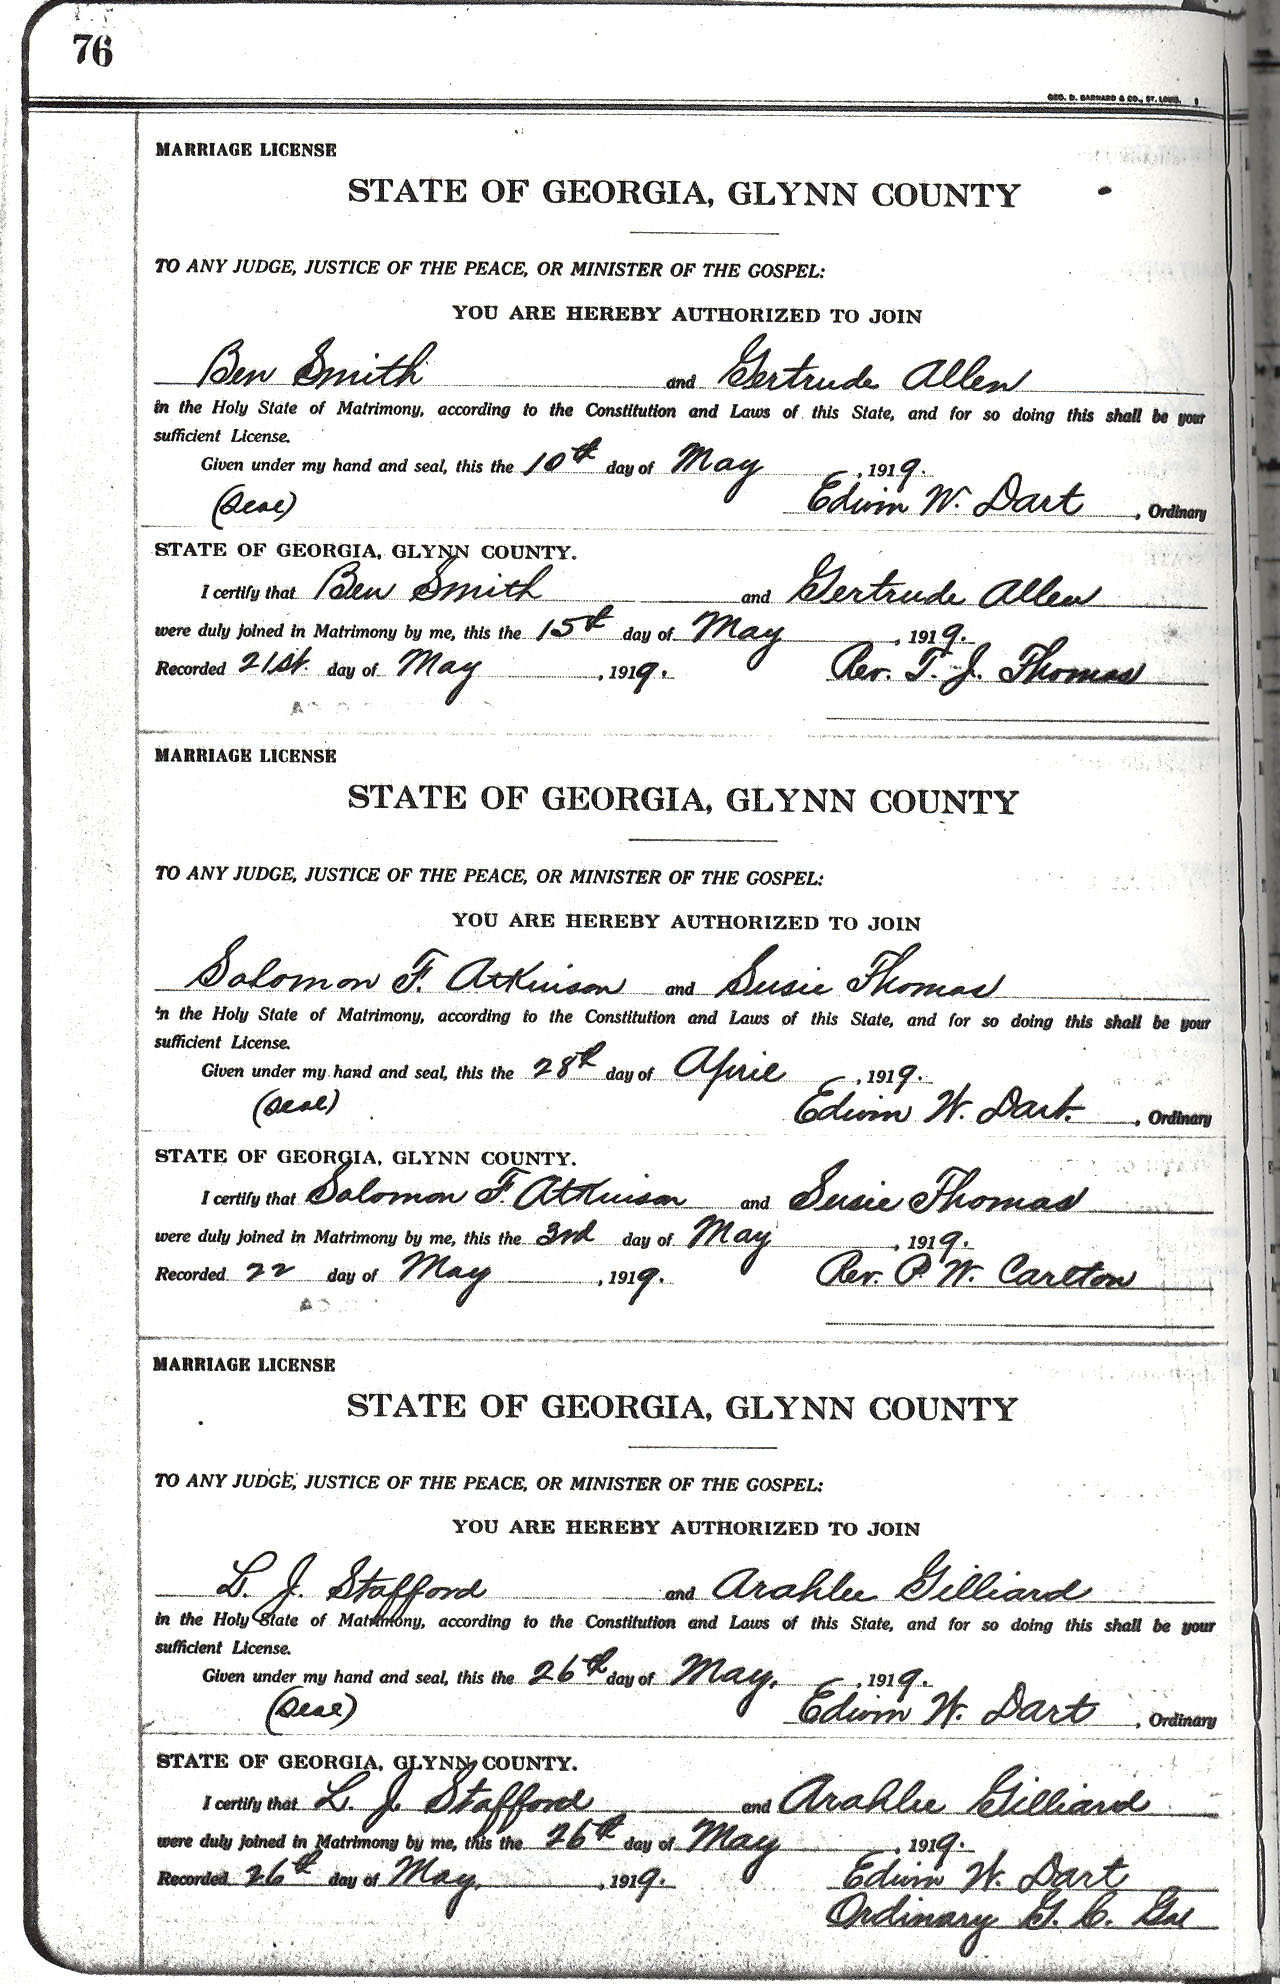 76
GEO. D. BARNARD & CO., ST. LOUIS.
MARRIAGE LICENSE
STATE OF GEORGIA, GLYNN COUNTY
TO ANY JUDGE, JUSTICE OF THE PEACE, OR MINISTER OF THE GOSPEL:
YOU ARE HEREBY AUTHORIZED TO JOIN
Ben Smith and Gertrude Allen
in the Holy State of Matrimony, according to the Constitution and Laws of this State, and for so doing this shall be your
sufficient License.
Given under my hand and seal, this the 10th day of May, 1919.
(Seal) Edwin W. Dart, Ordinary
STATE OF GEORGIA, GLYNN COUNTY.
I certify that Ben Smith and Gertrude Allen
were duly joined in Matrimony by me, this the 15th day of May, 1919.
Recorded 21st. day of May, 1919. Rev. T. J. Thomas
MARRIAGE LICENSE
STATE OF GEORGIA, GLYNN COUNTY
TO ANY JUDGE, JUSTICE OF THE PEACE, OR MINISTER OF THE GOSPEL:
YOU ARE HEREBY AUTHORIZED TO JOIN
Solomon F. Atkinson and Susie Thomas
in the Holy State of Matrimony, according to the Constitution and Laws of this State, and for so doing this shall be your
sufficient License.
Given under my hand and seal, this the 28th day of April, 1919.
(Seal) Edwin W. Dart., Ordinary
STATE OF GEORGIA, GLYNN COUNTY.
I certify that Solomon F. Atkinson and Susie Thomas
were duly joined in Matrimony by me, this the 3rd day of May, 1919.
Recorded 22 day of May, 1919. Rev. P. W. Carlton
MARRIAGE LICENSE
STATE OF GEORGIA, GLYNN COUNTY
TO ANY JUDGE, JUSTICE OF THE PEACE, OR MINISTER OF THE GOSPEL:
YOU ARE HEREBY AUTHORIZED TO JOIN
L. J. Stafford and Arahlee Gilliard
in the Holy State of Matrimony, according to the Constitution and Laws of this State, and for so doing this shall be your
sufficient License.
Given under my hand and seal, this the 26th day of May., 1919.
(Seal) Edwin W. Dart, Ordinary
STATE OF GEORGIA, GLYNN COUNTY.
I certify that L. J. Stafford and Arahlee Gilliard
were duly joined in Matrimony by me, this the 26th day of May, 1919.
Recorded 26th day of May., 1919. Edwin W. Dart
Ordinary G. C. Ga